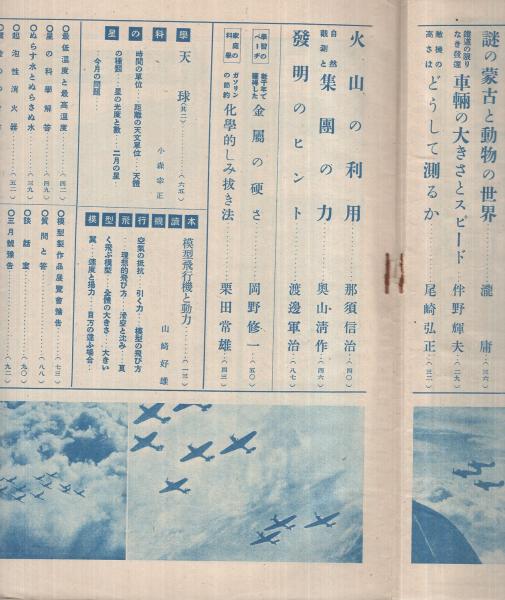 謎の蒙古と動物の世界……瀧　庸…(三六)
鐵道の限りなき發達
車輛の大きさとスピード……伴野輝夫…(二九)
敵機の高さは
どうして測るか……尾崎弘正…(三二)
火山の利用……那須信治…(四〇)
自然觀測と
集團の力……奥山清作…(四六)
發明のヒント……渡邊軍治…(八七)
學習のページ
金屬の硬さ……岡野修一…(五〇)
家庭の科學
ガソリンの節約
化學的しみ拔き法……栗田常雄…(四三)
星の科學
天球(其二)……(六五)
小森幸正
時間の單位……距離の天文單位……天體
の種類……星の光度と數……二月の星
……今月の問題……
模型飛行機讀本
模型飛行機と動力……(一三)
山崎好雄
空氣の抵抗……引く力……模型の飛び方
……理想的飛び方……浮空と沈み……
く飛ぶ模型……全體の大きさ……大きい
翼……速度と揚力……目方の違ふ場合…
◎最低溫度と最高溫度……(四二)
◎星の科學解答……(四九)
◎ぬらす水とぬらさぬ水……(三九)
◎起泡性消火器……(五二)
◎模型製作品展覽會豫告……(七三)
◎質問と答……(八八)
◎談話室……(九〇)
◎三月號豫告……(九二)